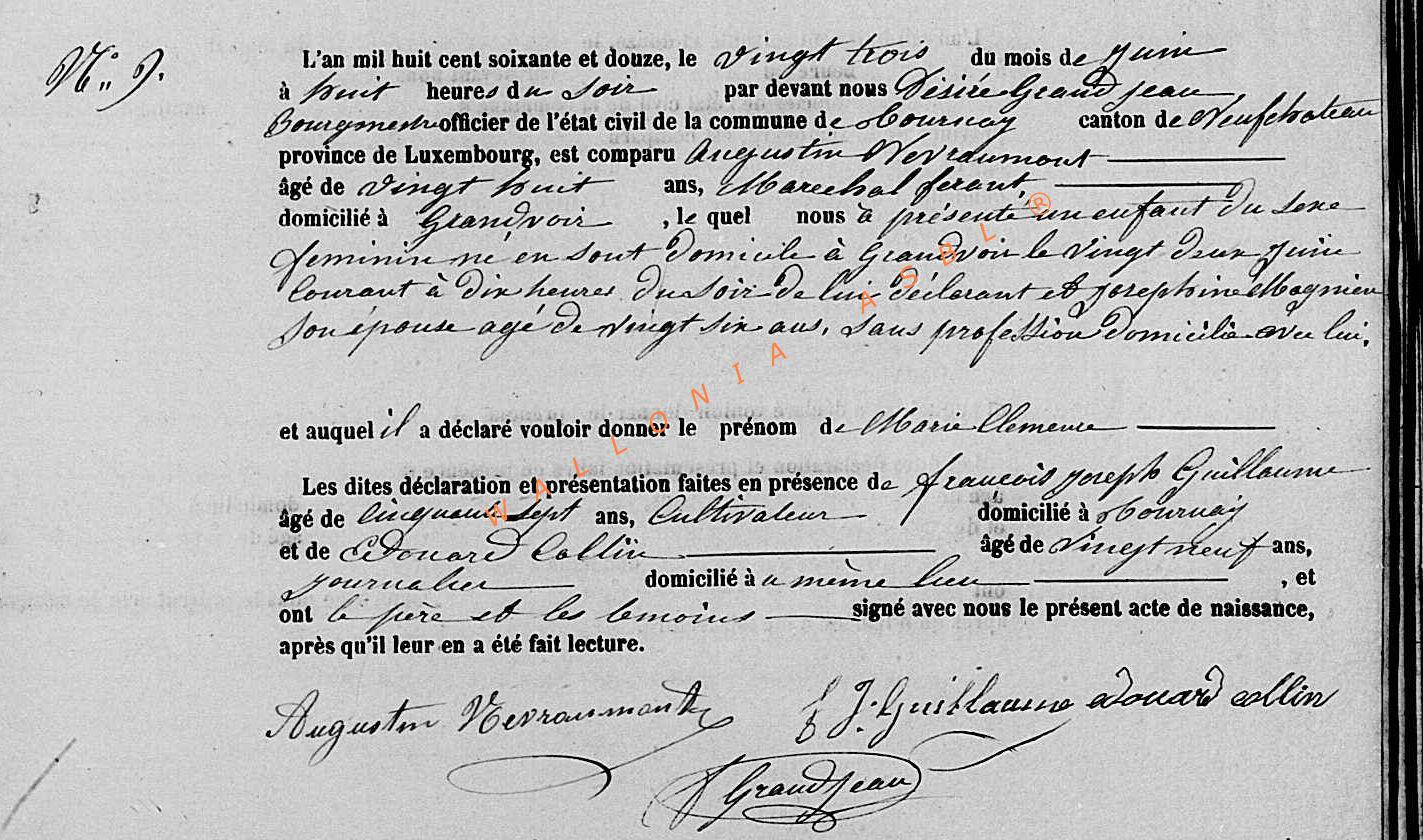 N° 9.
L'an mil huit cent soixante et douze, le vingt trois du mois de Juin
à huit heures du Soir par devant nous Désiré Grandjean
Bourgmestre officier de l'état civil de la commune de Tournay canton de Neufchateau
province de Luxembourg, est comparu Augustin Nevraumont
âgé de vingt huit ans, Marechal ferant,
domicilié à Grandvoir, le quel nous à présenté un enfant du sexe
feminin né en sont domicile à Grandvoir le vingt deux Juin
Courant à dix heures du soir de lui déclarant et Josephine Magnien
son épouse agé de vingt six ans, sans profession domicilié avec lui.
et auquel il a déclaré vouloir donner le prénom de Marie Clemence
Les dites déclaration et présentation faites en présence de francois joseph Guillaume
âgé de Cinquante sept ans, Cultivateur domicilié à Tournay
et de Edouard Collin âgé de vingt neuf ans,
journalier domicilié a même lieu, et
ont le père et les temoins signé avec nous le présent acte de naissance,
après qu'il leur en a été fait lecture.
Augustin Nevraumont f J. Guillaume edouard collin
GrandJean
WALLONIA ASBL ®